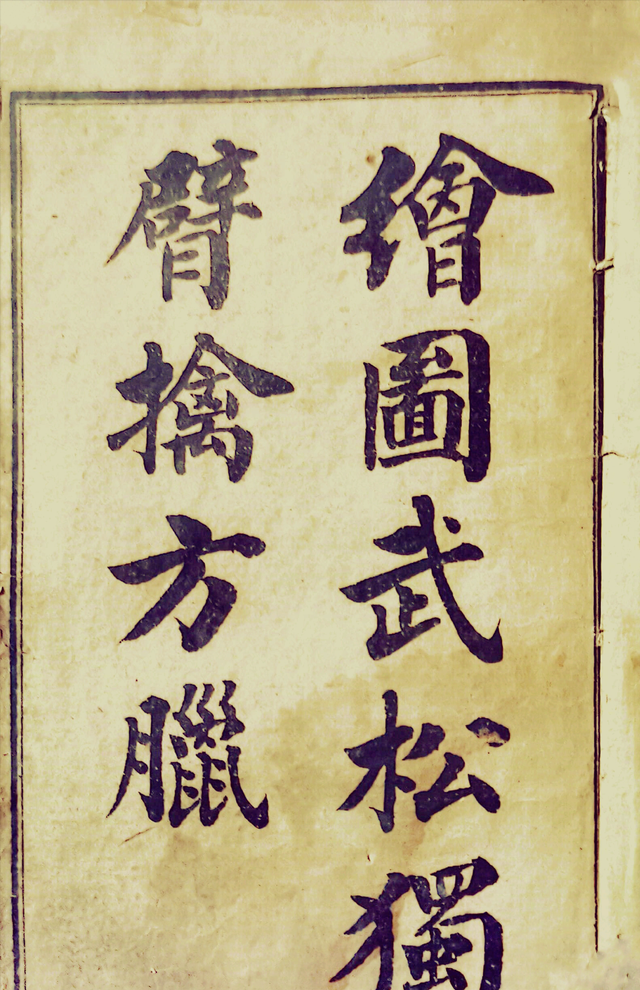 繪圖武松獨
臂擒方臘